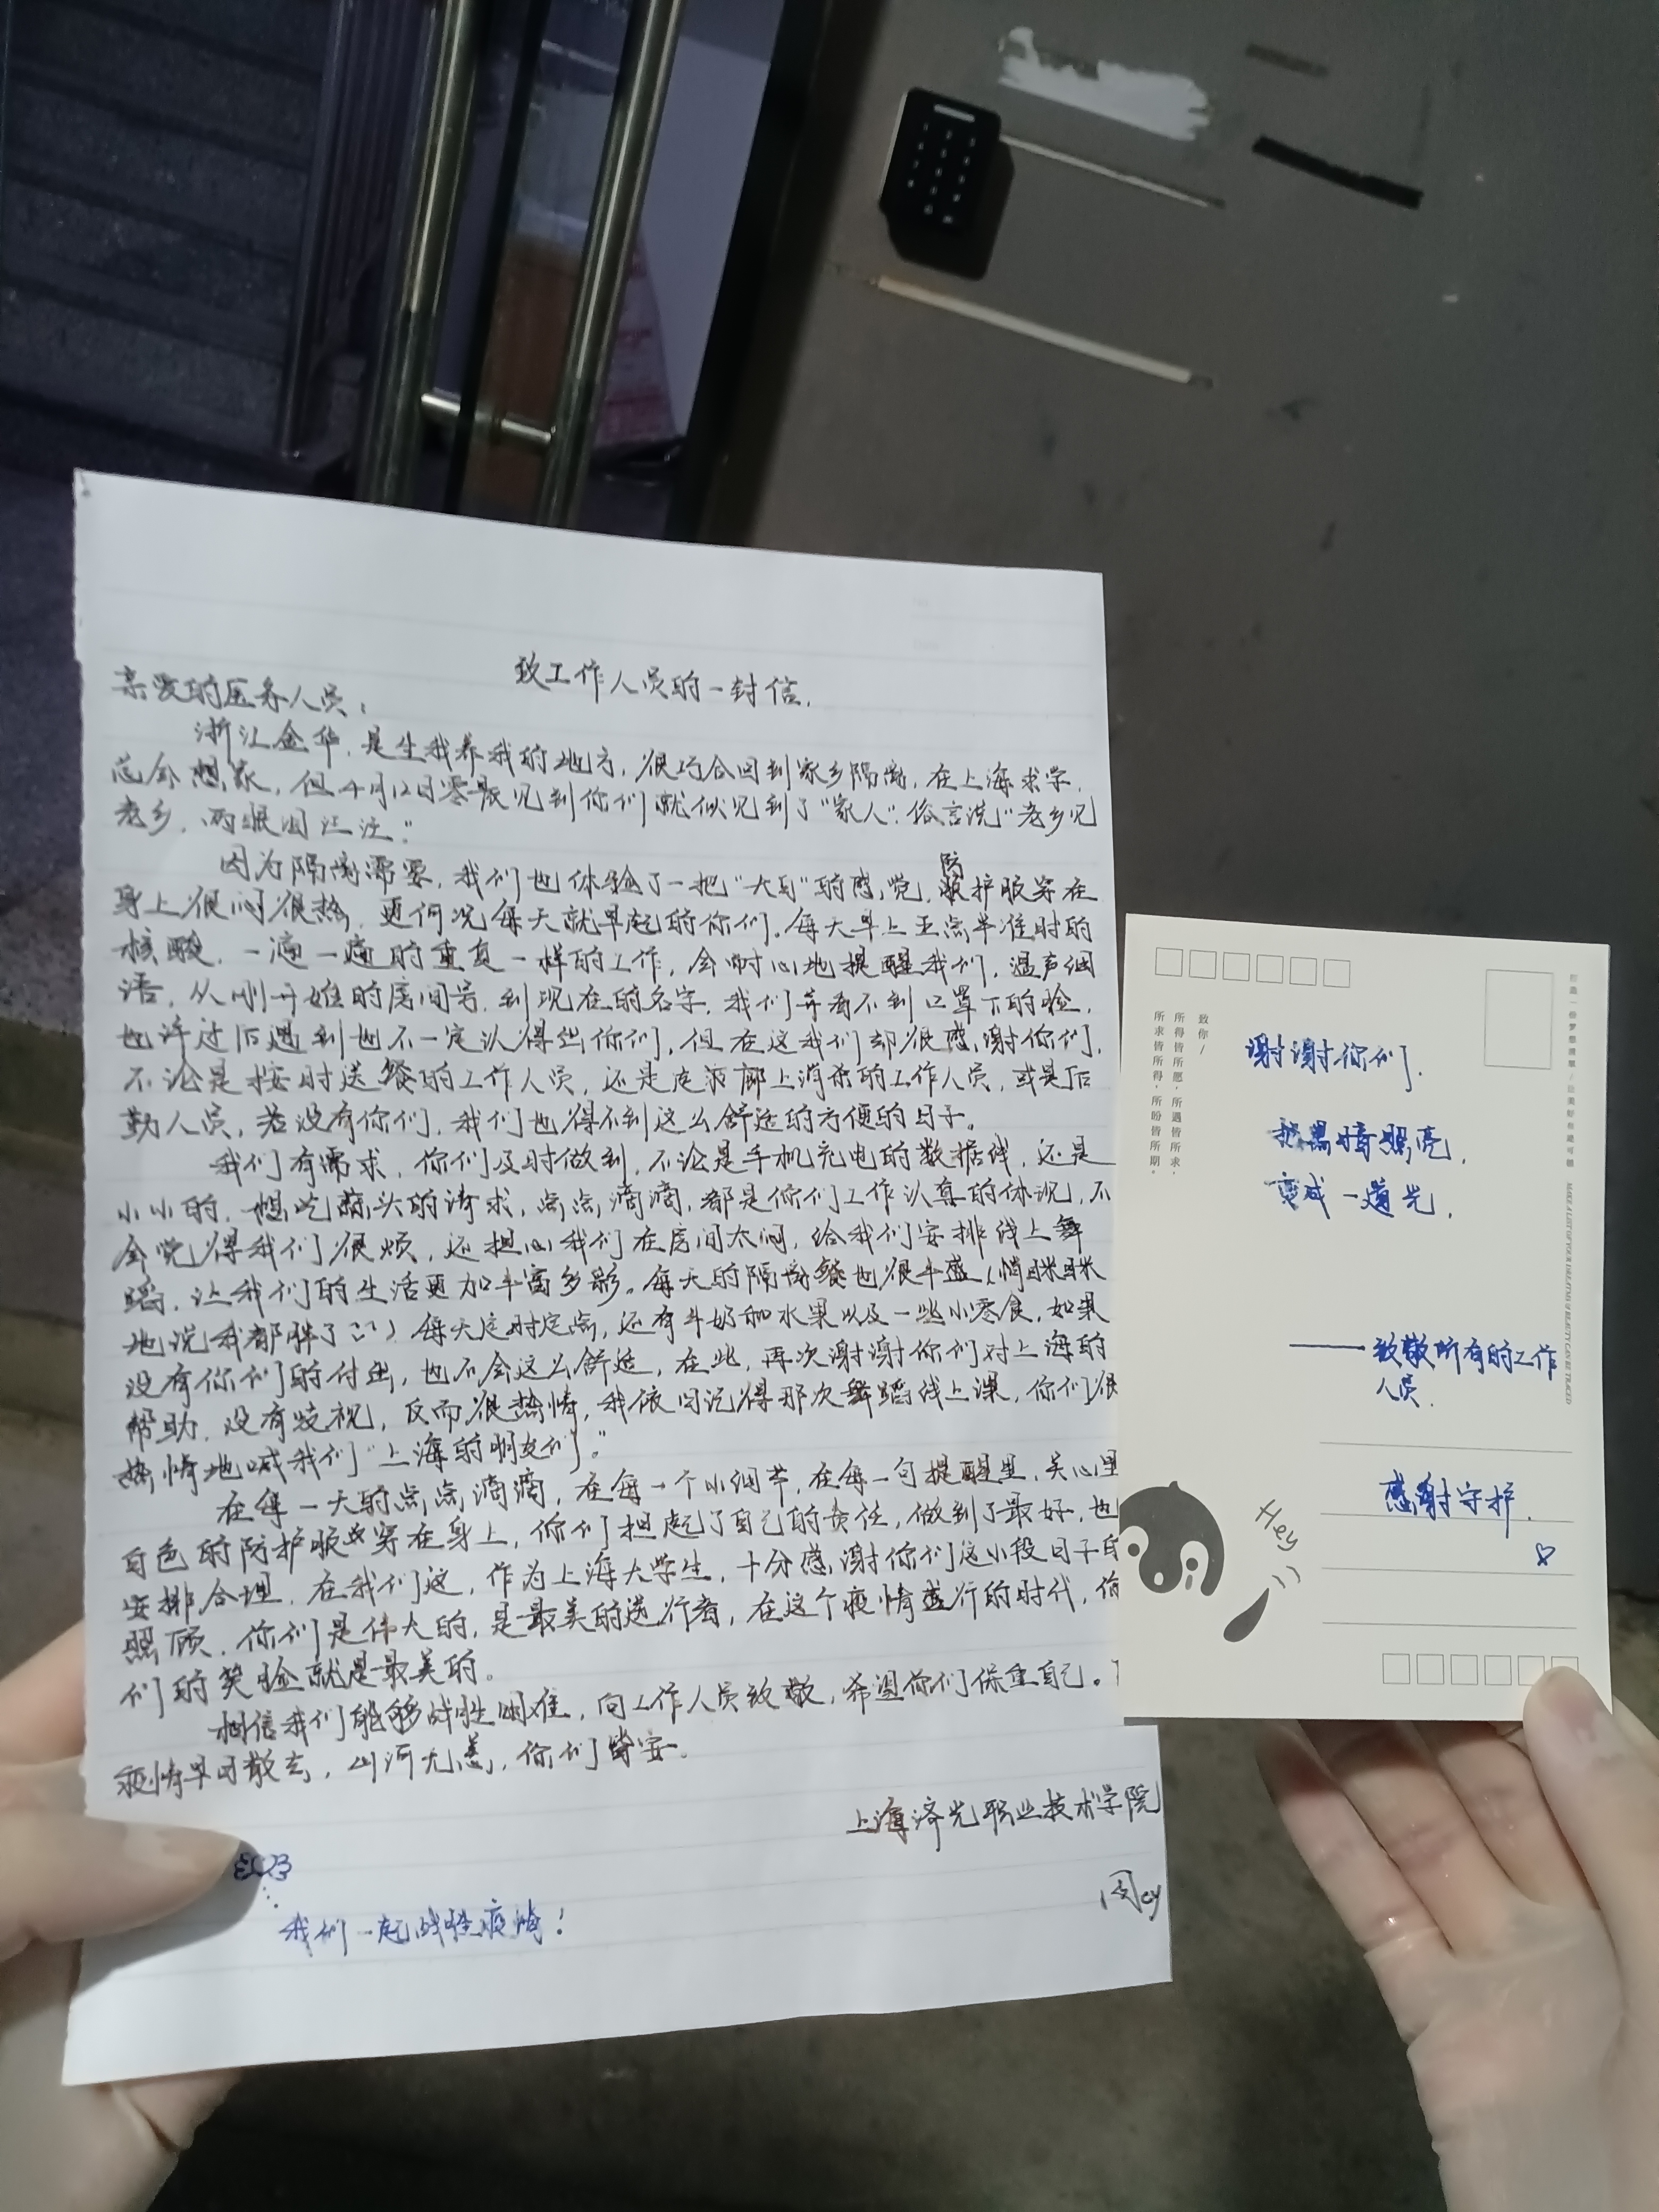 致工作人员的一封信.
亲爱的医务人员:
浙江金华,是生我养我的地方,很巧合回到家乡隔离,在上海求学,
总会想家,但4月12日零晨见到你们就似见到了"家人".俗言说"老乡见
老乡,两眼泪汪汪."
因为隔离需要,我们也体验了一把"大白"的感觉,防护服穿在
身上很闷很热,更何况每天就早起的你们.每天早上五点半准时的
核酸,一遍一遍的重复一样的工作,会耐心地提醒我们,温声细
语,从刚开始的房间号,到现在的名字,我们并看不到口罩下的脸,
也许过后遇到也不一定认得出你们,但在这我们却很感谢你们,
不论是按时送餐的工作人员,还是走廊上消杀的工作人员,或是后
勤人员,若没有你们,我们也得不到这么舒适的方便的日子.
我们有需求,你们及时做到,不论是手机充电的数据线,还是
小小的,想吃蒜头的请求,点点滴滴,都是你们工作认真的体现,不
会觉得我们很烦,还担心我们在房间太闷,给我们安排线上舞
蹈,让我们的生活更加丰富多彩。每天的隔离餐也很丰盛(悄咪咪
地说我都胖了:))每天定时定点,还有牛奶和水果以及一些小零食,如果
没有你们的付出,也不会这么舒适,在此,再次谢谢你们对上海的
帮助,没有歧视,反而很热情,我依旧记得那次舞蹈线上课,你们很
热情地喊我们"上海的朋友们。"
在每一天的点点滴滴,在每一个小细节,在每一句提醒里,关心里
白色的防护服穿在身上,你们担起了自己的责任,做到了最好,也
安排合理,在我们这,作为上海大学生,十分感谢你们这小段日子的
照顾,你们是伟大的,是最美的逆行者,在这个疫情盛行的时代,你
们的笑脸就是最美的。
相信我们能够战胜困难,向工作人员致敬,希望你们保重自己。
疫情早日散去,山河无恙,你们皆安.
上海济光职业技术学院
周cy
我们一起战胜疫情!
致你/
所得皆所愿·所遇皆所求·
所求皆所得·所盼皆所期·
谢谢你们.
把黑暗照亮,
变成一道光,
——致敬所有的工作
人员.
感谢守护.
Hey